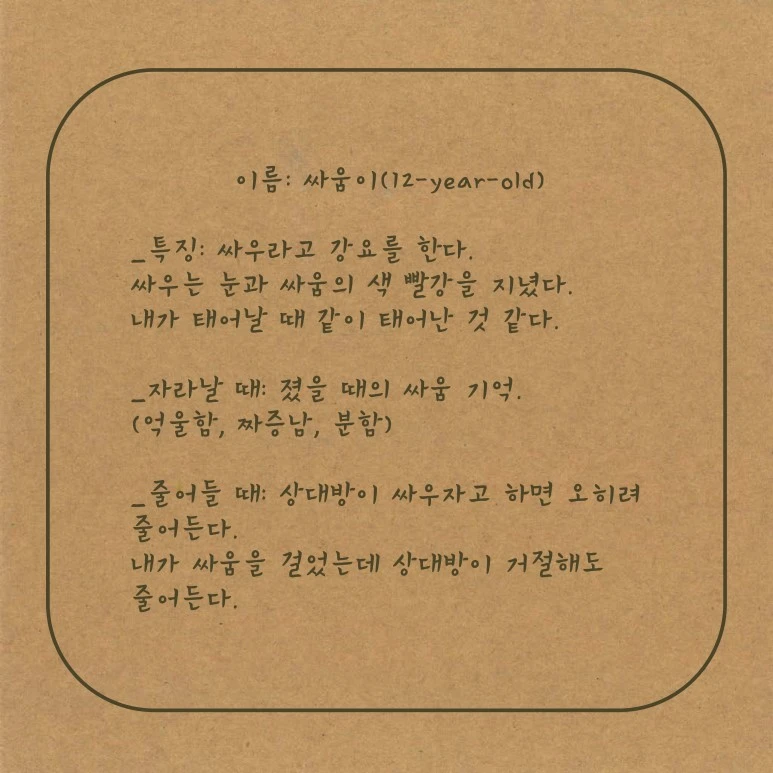 이름: 싸움이(12-year-old)
_특징: 싸우라고 강요를 한다.
싸우는 눈과 싸움의 색 빨강을 지녔다.
내가 태어날 때 같이 태어난 것 같다.
_자라날 때: 졌을 때의 싸움 기억.
(억울함, 짜증남, 분함)
_줄어들 때: 상대방이 싸우자고 하면 오히려
줄어든다.
내가 싸움을 걸었는데 상대방이 거절해도
줄어든다.